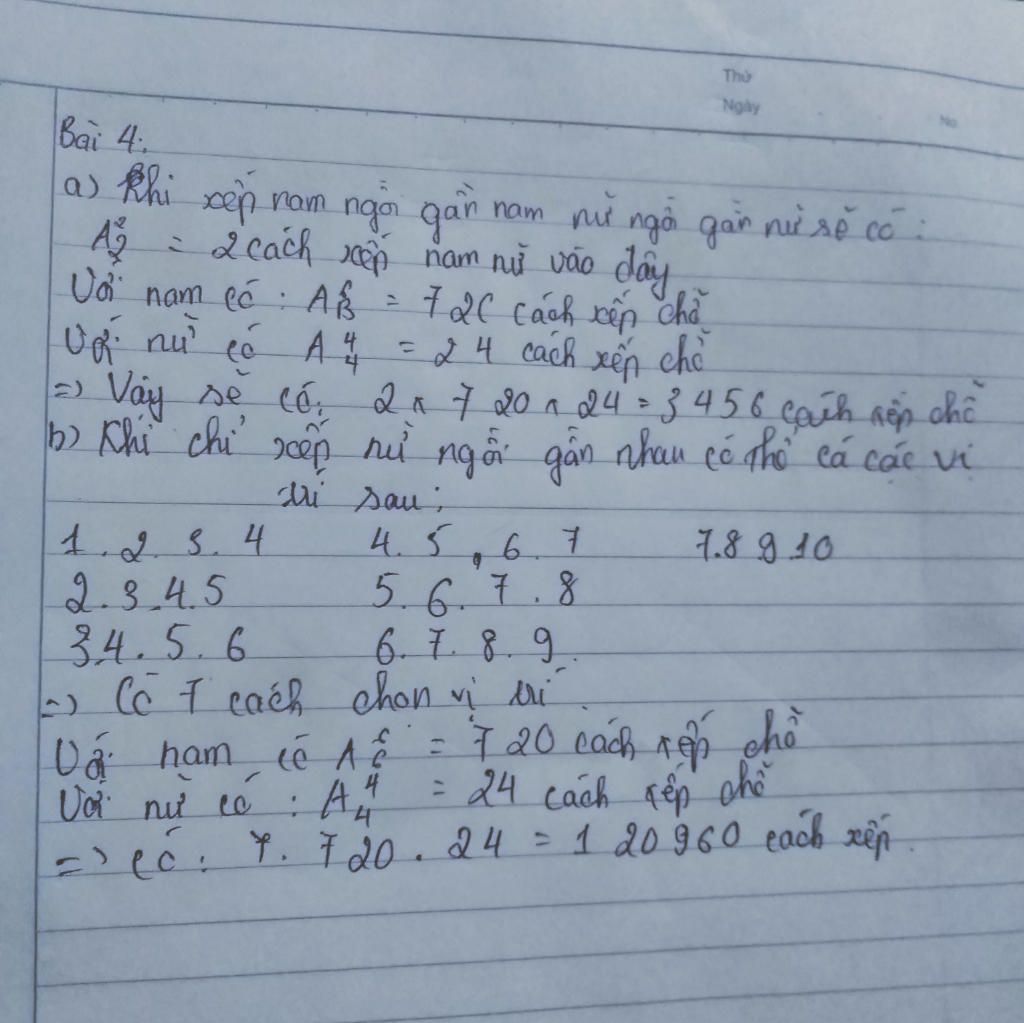 Thứ
Ngày
No
Bài 4:
a) Khi xếp nam ngồi gần nam nữ ngồi gần nữ sẽ có:
A²₂ = 2 cách xếp nam nữ vào dãy
Với nam có: A⁶₆ = 720 cách xếp chỗ
Với nữ có A⁴₄ = 24 cách xếp chỗ
=) Vậy sẽ có: 2 x 720 x 24 = 3456 cách xếp chỗ
b) Khi chỉ xếp nữ ngồi gần nhau có thể có các vị
trí sau:
1.2.3.4 4.5.6.7 7.8 9 10
2.3.4.5 5.6.7.8
3.4.5.6 6.7.8.9.
=) Có 7 cách chọn vị trí.
Với nam có A⁶₆ = 720 cách xếp chỗ
Với nữ có: A⁴₄ = 24 cách xếp chỗ
=> có: 7.720.24 = 120960 cách xếp.